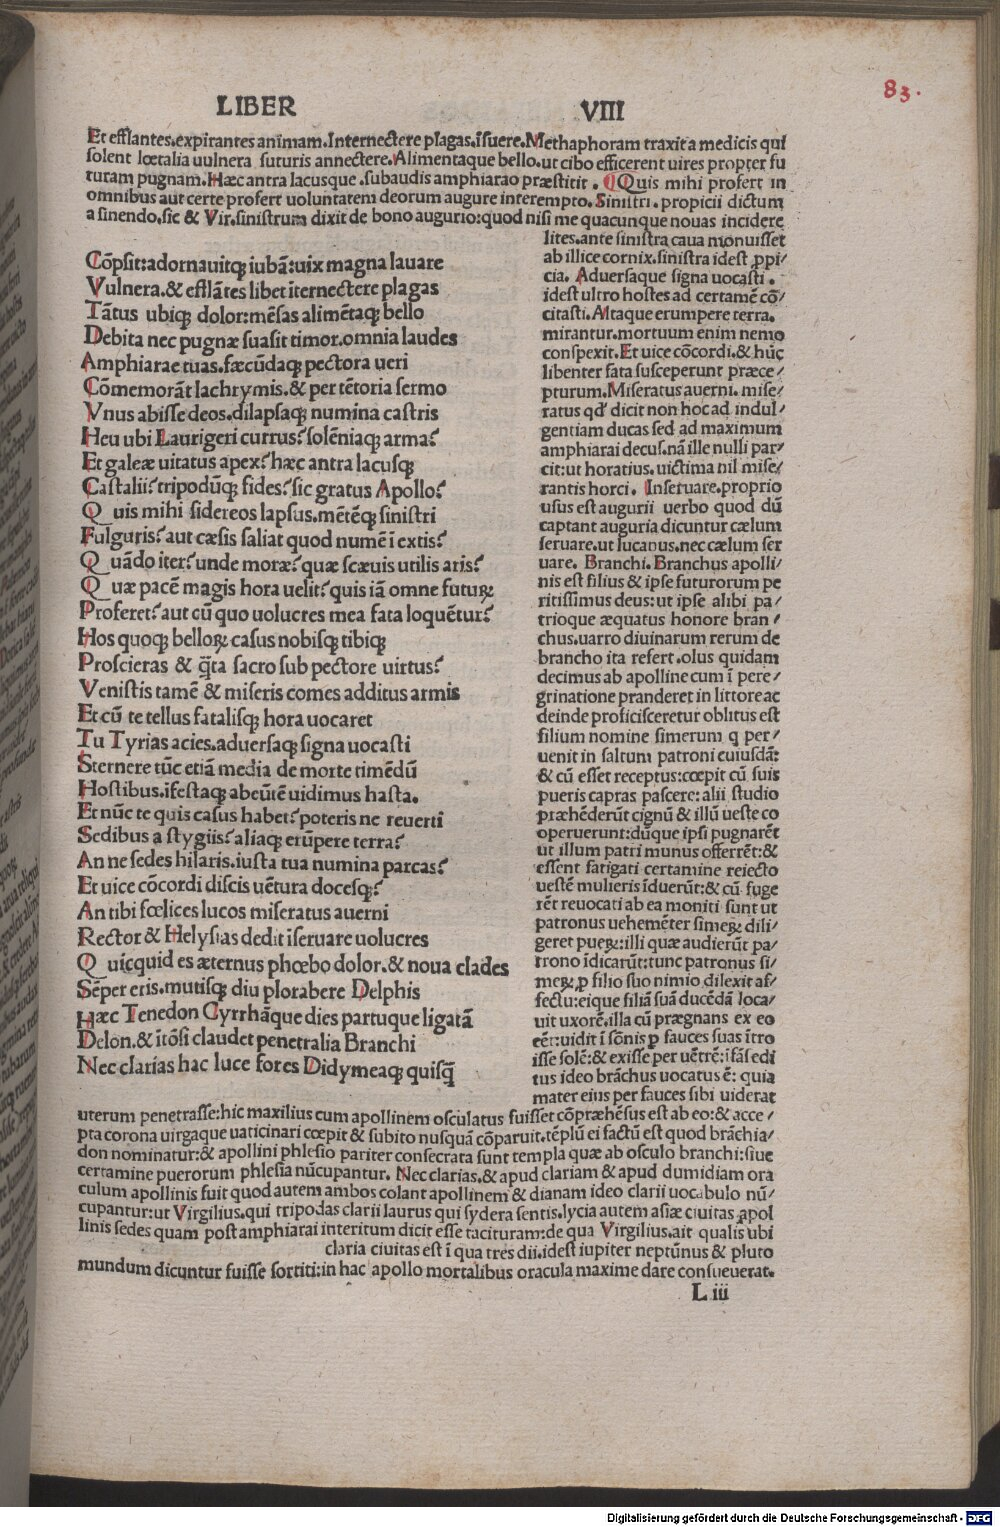 83.
LIBER VIII
Et efflantes.expirantes animam.Internectere plagas.īsuere.Methaphoram traxit a medicis qui
solent lœtalia uulnera suturis annectere.Alimentaque bello.ut cibo efficerent uires propter fu
turam pugnam.Hæc antra lacusque.subaudis amphiarao præstitit. Quis mihi profert in
omnibus aut certe profert uoluntatem deorum augure interempto.Sinistri.propicii dictum
a sinendo.sic & Vir.sinistrum dixit de bono augurio:quod nisi me quacunque nouas incidere
lites.ante sinistra caua monuisset
ab illice cornix.sinistra idest ꝓpi/
cia. Aduersaque signa uocasti.
idest ultro hostes ad certamē cō/
citasti.Ataque erumpere terra.
mirantur.mortuum enim nemo
conspexit.Et uice cōcordi.& hūc
libenter fata susceperunt præce/
pturum.Miseratus auerni.mise/
ratus qd' dicit non hoc ad indul/
gentiam ducas sed ad maximum
amphiarai decus.nā ille nulli par/
cit:ut horatius.uictima nil mise/
rantis horci. Inseruare.proprio
usus est augurii uerbo quod dū
captant auguria dicuntur cælum
seruare.ut lucanus.nec cælum ser
uare. Branchi.Branchus apolli/
nis est filius & ipse futurorum pe
ritissimus deus:ut ipse alibi pa/
trioque æquatus honore bran/
chus.uarro diuinarum rerum de
brancho ita refert.olus quidam
decimus ab apolline cum ī pere/
grinatione pranderet in littore ac
deinde proficisceretur oblitus est
filium nomine simerum q per/
uenit in saltum patroni cuiusdā:
& cū esset receptus:cœpit cū suis
pueris capras pascere:alii studio
præhēderūt cignū & illū ueste co
operuerunt:dūque ipsi pugnarēt
ut illum patri munus offerrēt:&
essent fatigati certamine reiecto
uestē mulieris īduerūt:& cū fuge
rēt reuocati ab ea moniti sunt ut
patronus uehemēter simeꝝ dili/
geret pueꝝ:illi quæ audierūt pa/
trono īdicarūt:tunc patronus si/
meꝝ ꝓ filio suo nimio dilexit af/
fectu:eique filiā suā ducēdā loca/
uit uxorē.illa cū prægnans ex eo
eēt:uidit ī sōnis ꝑ fauces suas ītro
isse solē:& exisse per uētrē:īfās edi
tus ideo brāchus uocatus ē: quia
mater eius per fauces sibi uiderat
Cōpsit:adornauitqꝫ iubā:uix magna lauare
Vulnera.& efflātes libet īternectere plagas
Tātus ubiqꝫ dolor:mēsas alimētaqꝫ bello
Debita nec pugnæ suasit timor.omnia laudes
Amphiarae tuas.fæcūdaqꝫ pectora ueri
Cōmemorāt lachrymis.& per tētoria sermo
Vnus abisse deos.dilapsaqꝫ numina castris
Heu ubi Laurigeri currus?solēniaqꝫ arma?
Et galeæ uitatus apex?hæc antra lacusqꝫ
Castalii?tripodūqꝫ fides?sic gratus Apollo?
Quis mihi sidereos lapsus.mētēqꝫ sinistri
Fulguris?aut cæsis saliat quod numē ī extis?
Quādo iter?unde moræ?quæ scæuis utilis aris?
Quæ pacē magis hora uelit?quis iā omne futuꝝ
Proferet?aut cū quo uolucres mea fata loquētur?
Hos quoqꝫ belloꝝ casus nobisqꝫ tibiqꝫ
Proscieras & q̄ta sacro sub pectore uirtus?
Venistis tamē & miseris comes additus armis
Et cū te tellus fatalisqꝫ hora uocaret
Tu Tyrias acies.aduersaqꝫ signa uocasti
Sternere tūc etiā media de morte timēdū
Hostibus.īfestaqꝫ abeūtē uidimus hasta.
Et nūc te quis casus habet?poteris ne reuerti
Sedibus a stygiis?aliaqꝫ erūpere terra?
An ne sedes hilaris.iusta tua numina parcas?
Et uice cōcordi discis uētura docesqꝫ?
An tibi fœlices lucos miseratus auerni
Rector & Helysias dedit īseruare uolucres
Quicquid es æternus phœbo dolor.& noua clades
Sēper eris.mutisqꝫ diu plorabere Delphis
Hæc Tenedon Cyrrhāque dies partuque ligatā
Delon.& ītōsi claudet penetralia Branchi
Nec clarias hac luce fores Didymeaqꝫ quisq̄
uterum penetrasse:hic maxilius cum apollinem osculatus fuisset cōpræhēsus est ab eo:& acce/
pta corona uirgaque uaticinari cœpit & subito nusquā cōparuit.tēplū ei factū est quod brāchia/
don nominatur:& apollini phlesio pariter consecrata sunt templa quæ ab osculo branchi:siue
certamine puerorum phlesia nūcupantur. Nec clarias.& apud clariam & apud dumidiam ora
culum apollinis fuit quod autem ambos colant apollinem & dianam ideo clarii uocabulo nū/
cupantur:ut Virgilius.qui tripodas clarii laurus qui sydera sentis.lycia autem asiæ ciuitas apol
linis sedes quam post amphiarai interitum dicit esse tacituram:de qua Virgilius.ait qualis ubi
claria ciuitas est ī qua tres dii.idest iupiter neptūnus & pluto
mundum dicuntur fuisse sortiti:in hac apollo mortalibus oracula maxime dare consueuerat.
L iii
Digitalisierung gefördert durch die Deutsche Forschungsgemeinschaft - DFG